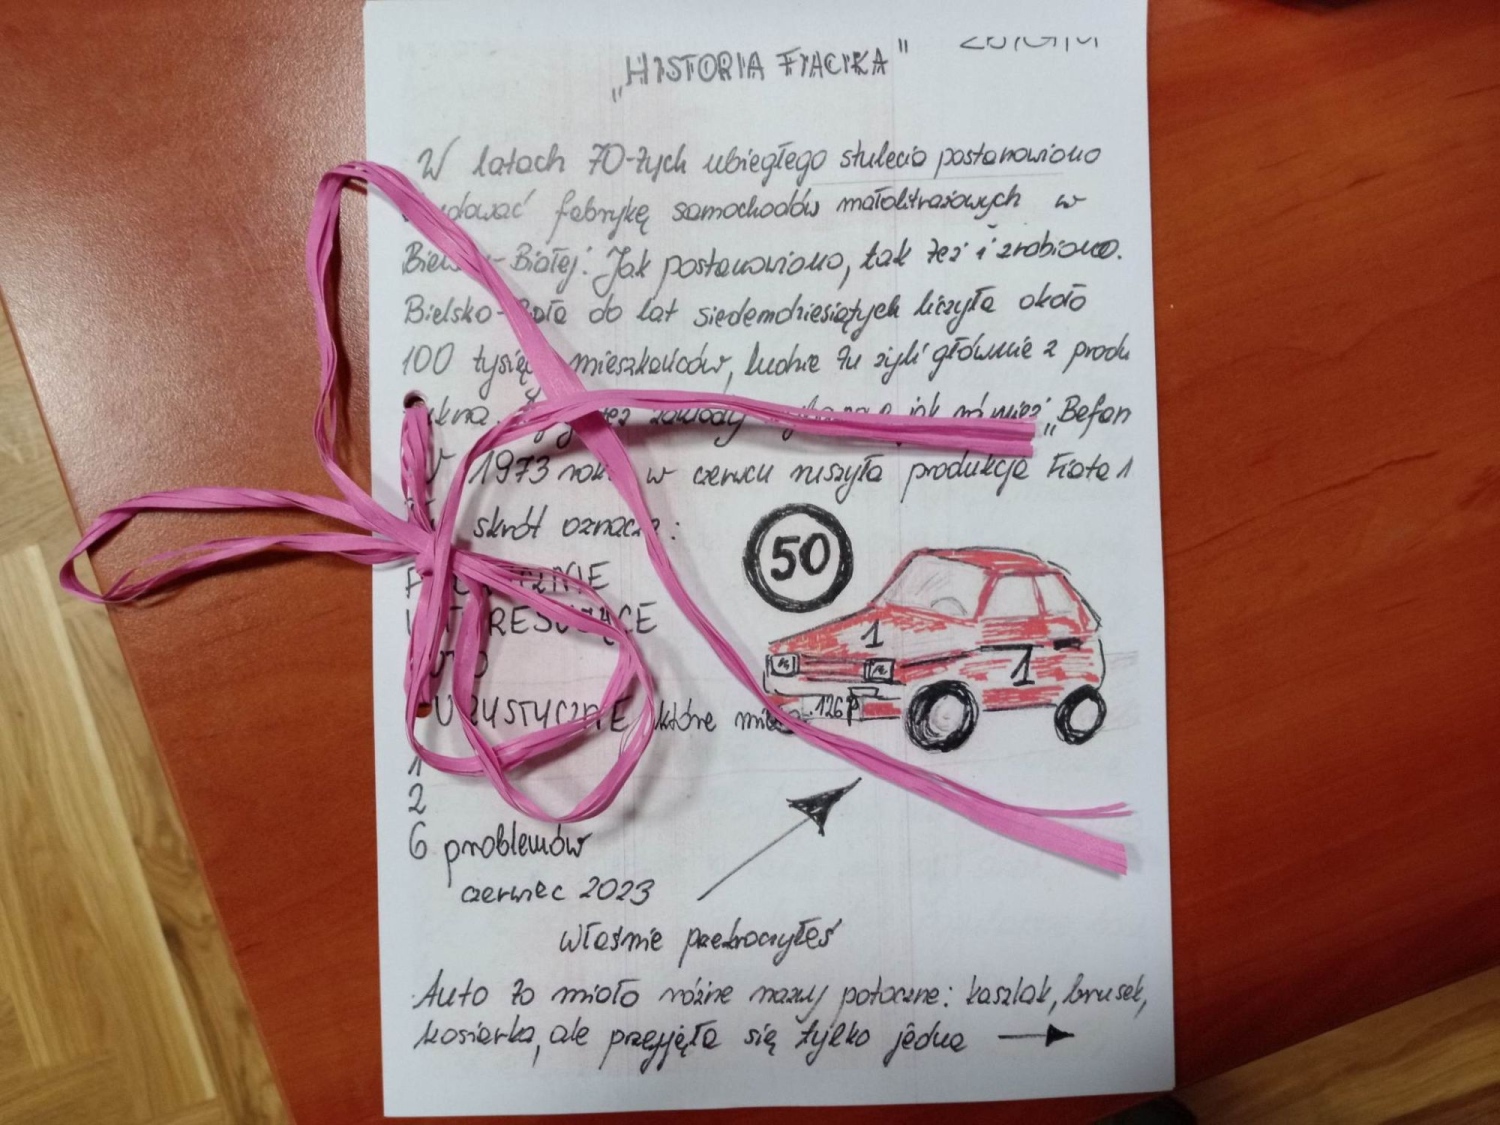 „HISTORIA FIACIKA"
W latach 70-tych ubiegłego stulecia postanowiono
fabrykę samochodów małolitrażowych w
Białej. Jak postanowiono, tak też i zrobiono.
Bielsko- do lat siedemdziesiątych liczyła około
100 mieszkańców, ludzie tu żyli głównie z produ
zakłady jak również „Befan
1973 w czerwcu ruszyła produkcja Fiata 1
skrót oznacza:
50
1
1
126p
które
1
2
6 problemów
czerwiec 2023
właśnie przekroczyłeś
Auto to miało różne nazwy potoczne: kaszlak, brusek,
kosiarka, ale przyjęła się tylko jedna